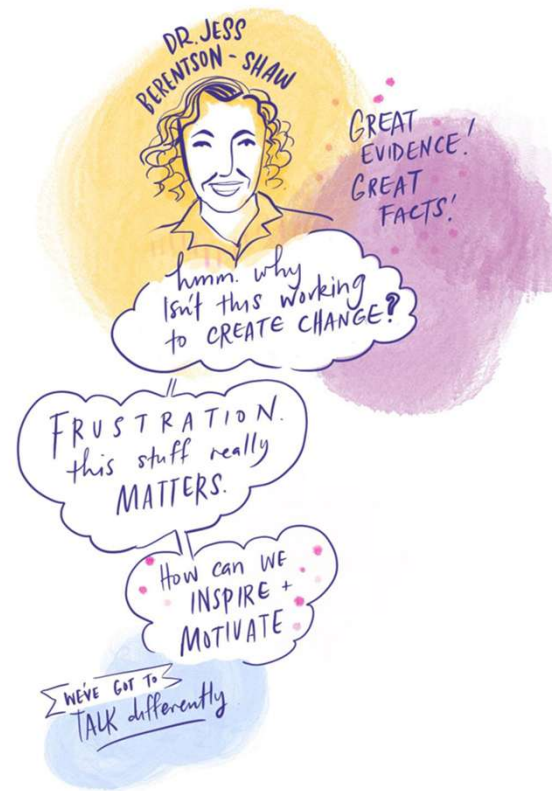 DR. JESS
BERENTSON - SHAW
GREAT
EVIDENCE!
GREAT
FACTS!
hmm. why
Isn't this working
to CREATE CHANGE?
FRUSTRATION.
this stuff really
MATTERS.
HOW can WE
INSPIRE +
MOTIVATE
WE'VE GOT TO
TALK differently